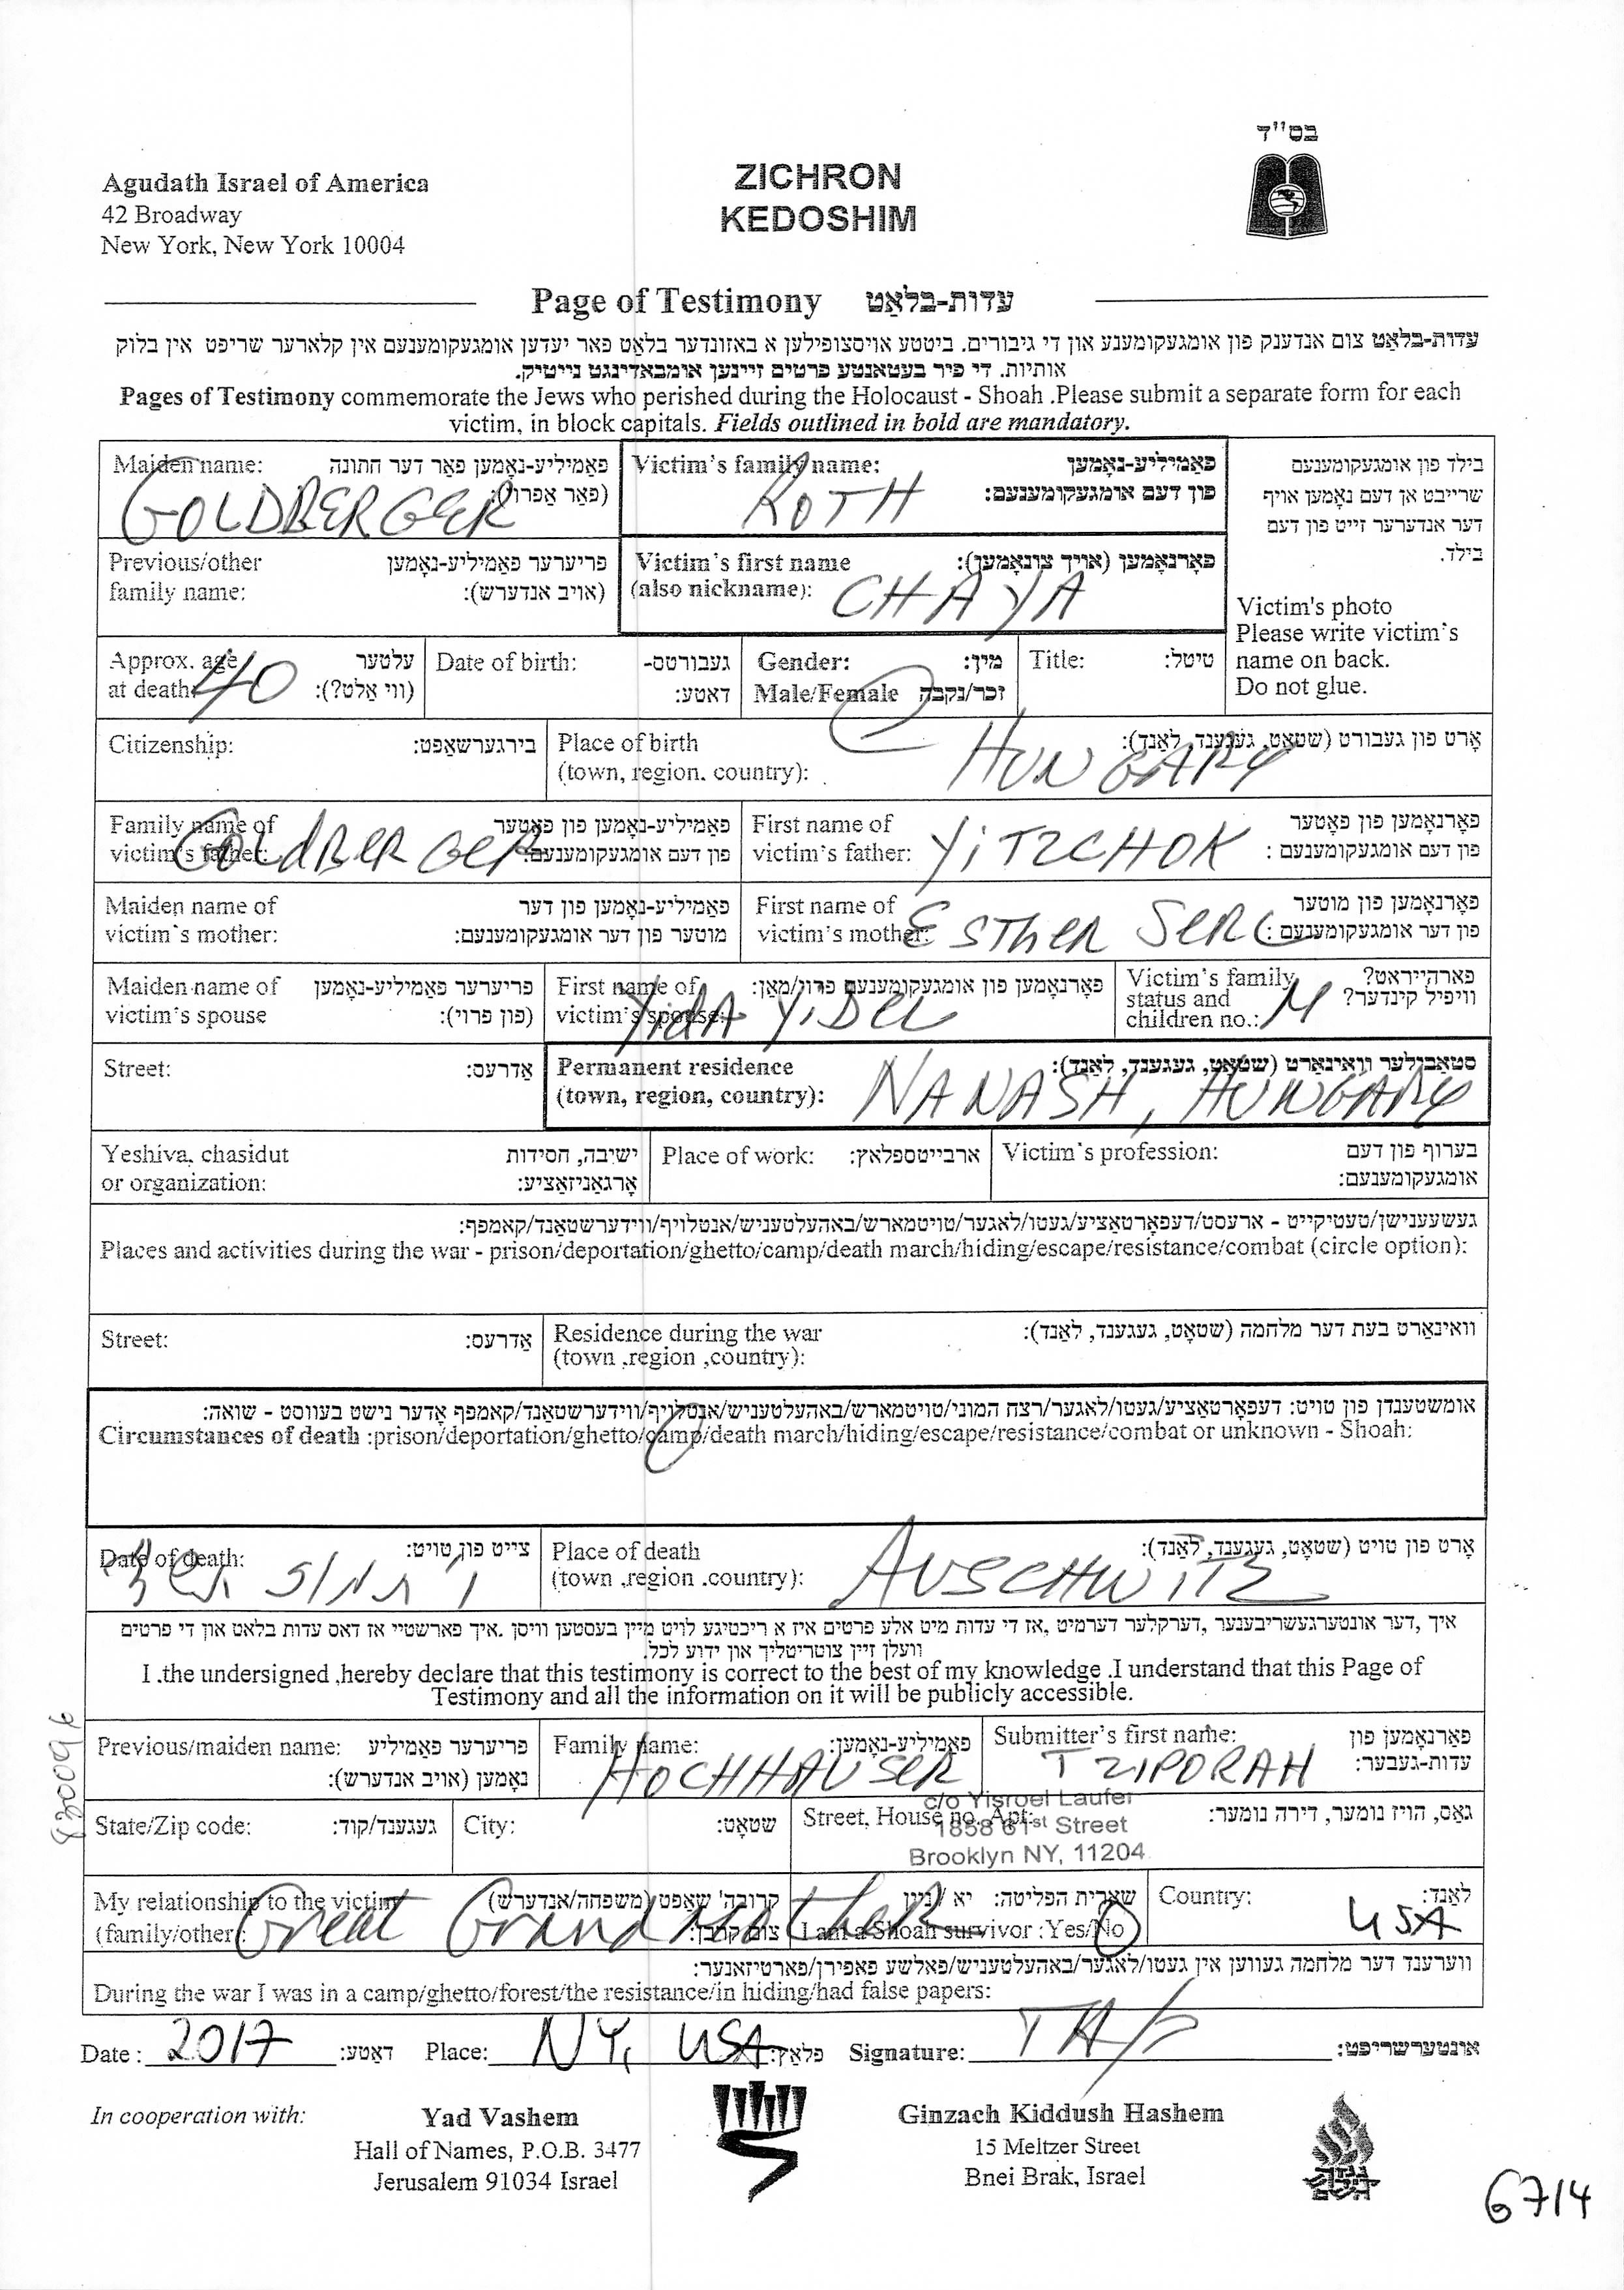 בס"ד
Agudath Israel of America
42 Broadway
New York, New York 10004
ZICHRON
KEDOSHIM
Page of Testimony עדות-בלאַט
עדות-בלאַט צום אנדענק פון אומגעקומענע און די גיבורים. ביטטע אויסצופילען א באזונדער בלאַט פאר יעדען אומגעקומענעם אין קלארער שריפט אין בלוק
אותיות. די פיר בעטאָנטע פרטים זיינען אומבאדינגט נייטיק.
Pages of Testimony commemorate the Jews who perished during the Holocaust - Shoah .Please submit a separate form for each
victim, in block capitals. Fields outlined in bold are mandatory.
Maiden name: פאַמיליע-נאָמען פאַר דער חתונה
(פאַר אַפרוי):
GOLDBERGER
Victim's family name: פאַמיליע-נאָמען
פון דעם אומגעקומענעם:
ROTH
בילד פון אומגעקומענעם
שרייבט אן דעם נאָמען אויף
דער אנדערער זייט פון דעם
בילד.
Victim's photo
Please write victim's
name on back.
Do not glue.
Previous/other פריערער פאַמיליע-נאָמען
family name: (אויב אנדערש):
Victim's first name פאָרנאָמען (אויך צונאָמען):
(also nickname): CHAYA
Approx. age עלטער
at death: (ווי אַלט?): 40
Date of birth: געבורטס-
דאטע:
Gender: מין:
Male/Female זכר/נקבה
Title: טיטל:
Citizenship: בירגערשאַפט:
Place of birth אָרט פון געבורט (שטאָט, געגענד, לאַנד):
(town, region. country): HUNGARY
Family name of פאַמיליע-נאָמען פון פאָטער
victim's father: פון דעם אומגעקומענעם:
GOLdBERGER
First name of פאָרנאָמען פון פאָטער
victim's father: פון דעם אומגעקומענעם :
YiTZCHOK
Maiden name of פאַמיליע-נאָמען פון דער
victim's mother: מוטער פון דער אומגעקומענעם:
First name of פאָרנאָמען פון מוטער
victim's mother: פון דער אומגעקומענעם :
ESThER SERL
Maiden name of פריערער פאַמיליע-נאָמען
victim's spouse (פון פרוי):
First name of פאָרנאָמען פון אומגעקומענעם פרוי/מאַן:
victim's spouse: YidA YiDEL
Victim's family פארהייראט?
status and וויפיל קינדער?
children no.: M
Street: אַדרעס:
Permanent residence סטאַבילער וואוינאָרט (שטאָט, געגענד, לאַנד):
(town, region, country): NANASH, HUNGARY
Yeshiva, chasidut ישיבה, חסידות
or organization: אָרגאַניזאַציע:
Place of work: ארבייטספלאץ:
Victim's profession: בערוף פון דעם
אומגעקומענעם:
געשעענישן/טעטיקייט - ארעסט/דעפאָרטאַציע/געטו/לאַגער/טויטמארש/באהעלטעניש/אנטלויף/ווידערשטאַנד/קאמפף:
Places and activities during the war - prison/deportation/ghetto/camp/death march/hiding/escape/resistance/combat (circle option):
Street: אַדרעס:
Residence during the war וואוינאָרט בעת דער מלחמה (שטאָט, געגענד, לאַנד):
(town ,region ,country):
אומשטענדן פון טויט: דעפאָרטאַציע/געטו/לאַגער/רצח המוני/טויטמארש/באהעלטעניש/אנטלויף/ווידערשטאַנד/קאמפף אָדער נישט בעוואוסט - שואה:
Circumstances of death :prison/deportation/ghetto/camp/death march/hiding/escape/resistance/combat or unknown - Shoah:
Date of death: צייט פון טויט:
Place of death אָרט פון טויט (שטאָט, געגענד, לאַנד):
(town ,region .country): AUSCHWITZ
איך ,דער אונטערגעשריבענער ,דערקלער דערמיט ,אז די עדות מיט אלע פרטים איז א ריכטיגע לויט מיין בעסטען וויסן .איך פארשטיי אז דאס עדות בלאט און די פרטים
וועלן זיין צוטריטליך און ידוע לכל.
I .the undersigned ,hereby declare that this testimony is correct to the best of my knowledge .I understand that this Page of
Testimony and all the information on it will be publicly accessible.
Previous/maiden name: פריערער פאַמיליע
נאָמען (אויב אנדערש):
Family name: פאַמיליע-נאָמען:
HOCHHAUSER
Submitter's first name: פאָרנאָמען פון
עדות-געבער:
TZIPORAH
State/Zip code: געגענד/קוד:
City: שטאָט:
Street, House no, Apt: גאַס, הויז נומער, דירה נומער:
c/o Yisroel Laufer
1858 61st Street
Brooklyn NY, 11204
My relationship to the victim קרובה' שאַפט (משפחה/אנדערש)
(family/other): צום קרבן:
Great Grandmother
שארית הפליטה: יא / ניין
I am a Shoah survivor :Yes/No
Country: לאַנד:
USA
ווערענד דער מלחמה געווען אין געטו/לאַגער/באהעלטעניש/פאלשע פאפירן/פארטיזאנער:
During the war I was in a camp/ghetto/forest/the resistance/in hiding/had false papers:
Date : 2017 דאַטע: Place: NY, USA פלאַץ: Signature: אונטערשריפט:
In cooperation with:
Yad Vashem
Hall of Names, P.O.B. 3477
Jerusalem 91034 Israel
Ginzach Kiddush Hashem
15 Meltzer Street
Bnei Brak, Israel
גנזך
קידוש
השם
6714